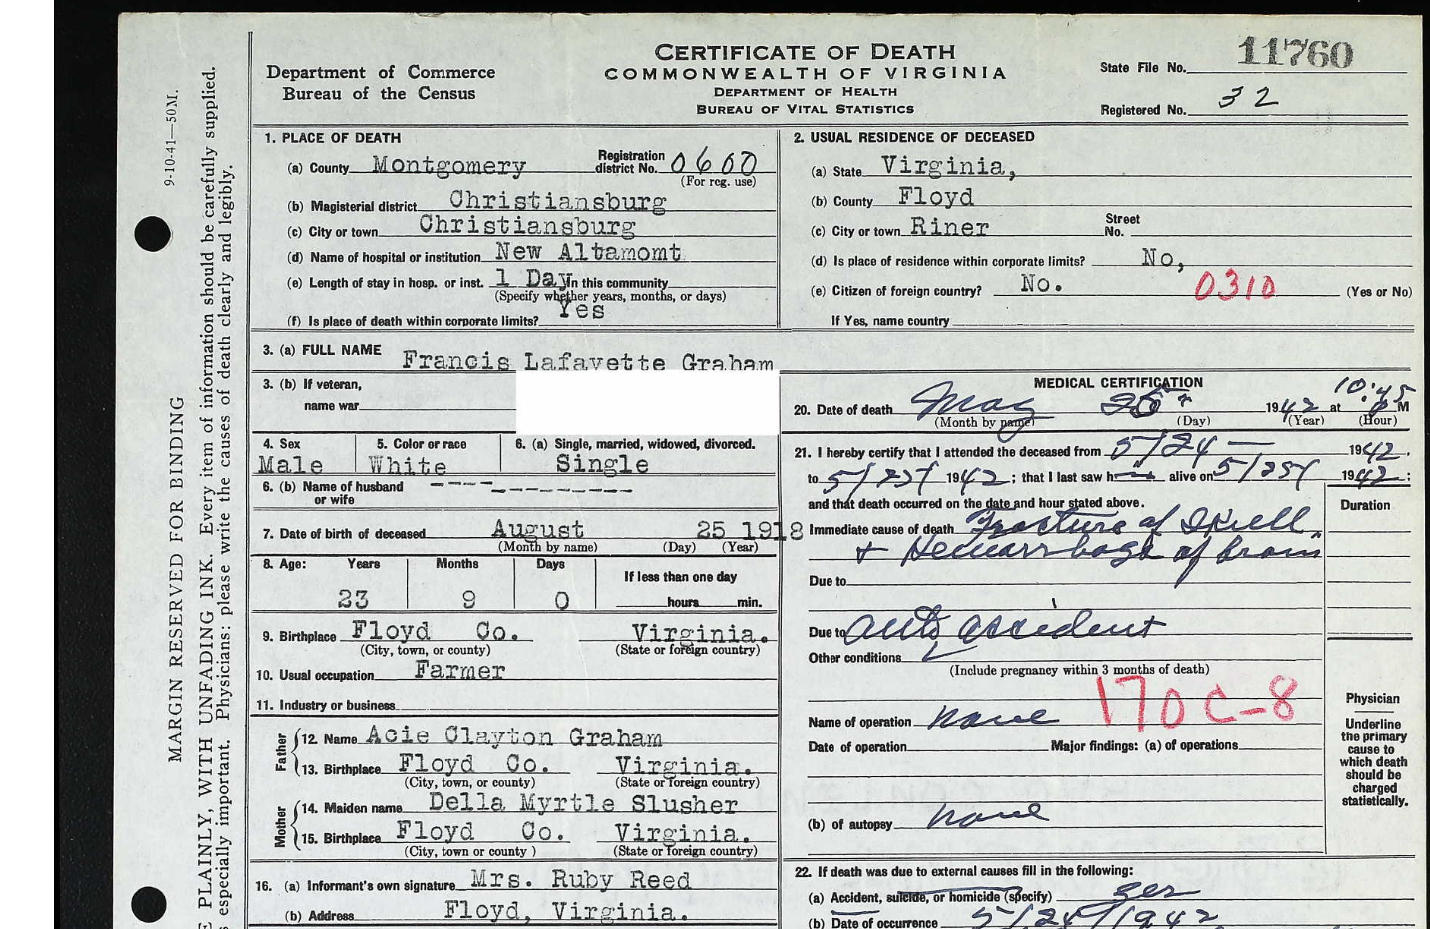 CERTIFICATE OF DEATH
COMMONWEALTH OF VIRGINIA
DEPARTMENT OF HEALTH
BUREAU OF VITAL STATISTICS
Department of Commerce
Bureau of the Census
State File No. 11760
Registered No. 32
9-10-41—50M.
MARGIN RESERVED FOR BINDING
PLAINLY, WITH UNFADING INK. Every item of information should be carefully supplied.
especially important. Physicians: please write the causes of death clearly and legibly.
1. PLACE OF DEATH
(a) County Montgomery Registration district No. 0600
(For reg. use)
(b) Magisterial district Christiansburg
(c) City or town Christiansburg
(d) Name of hospital or institution New Altamomt
(e) Length of stay in hosp. or inst. 1 Day In this community
(Specify whether years, months, or days)
(f) Is place of death within corporate limits? Yes
2. USUAL RESIDENCE OF DECEASED
(a) State Virginia,
(b) County Floyd
(c) City or town Riner Street No.
(d) Is place of residence within corporate limits? No,
(e) Citizen of foreign country? No. 0310 (Yes or No)
If Yes, name country
3. (a) FULL NAME Francis Lafayette Graham
3. (b) If veteran,
name war
4. Sex 5. Color or race 6. (a) Single, married, widowed, divorced.
Male White Single
6. (b) Name of husband
or wife
7. Date of birth of deceased August 25 1918
(Month by name) (Day) (Year)
8. Age: Years Months Days If less than one day
23 9 0 hours min.
9. Birthplace Floyd Co. Virginia.
(City, town, or county) (State or foreign country)
10. Usual occupation Farmer
11. Industry or business
Father
12. Name Acie Clayton Graham
13. Birthplace Floyd Co. Virginia.
(City, town, or county) (State or foreign country)
Mother
14. Maiden name Della Myrtle Slusher
15. Birthplace Floyd Co. Virginia.
(City, town or county ) (State or foreign country)
16. (a) Informant's own signature Mrs. Ruby Reed
(b) Address Floyd, Virginia.
MEDICAL CERTIFICATION
20. Date of death May 25 1942 at 10:45 P M
(Month by name) (Day) (Year) (Hour)
21. I hereby certify that I attended the deceased from 5/24 1942.
to 5/25/ 1942; that I last saw h alive on 5/25/ 1942;
and that death occurred on the date and hour stated above.
Duration
Immediate cause of death Fracture of Skull
+ Hemorrhage of brain
Due to
Due to auto accident
Other conditions
(Include pregnancy within 3 months of death)
170 C-8
Name of operation none
Date of operation Major findings: (a) of operations
(b) of autopsy none
Physician
Underline
the primary
cause to
which death
should be
charged
statistically.
22. If death was due to external causes fill in the following:
(a) Accident, suicide, or homicide (specify) yes
(b) Date of occurrence 5/24/1942